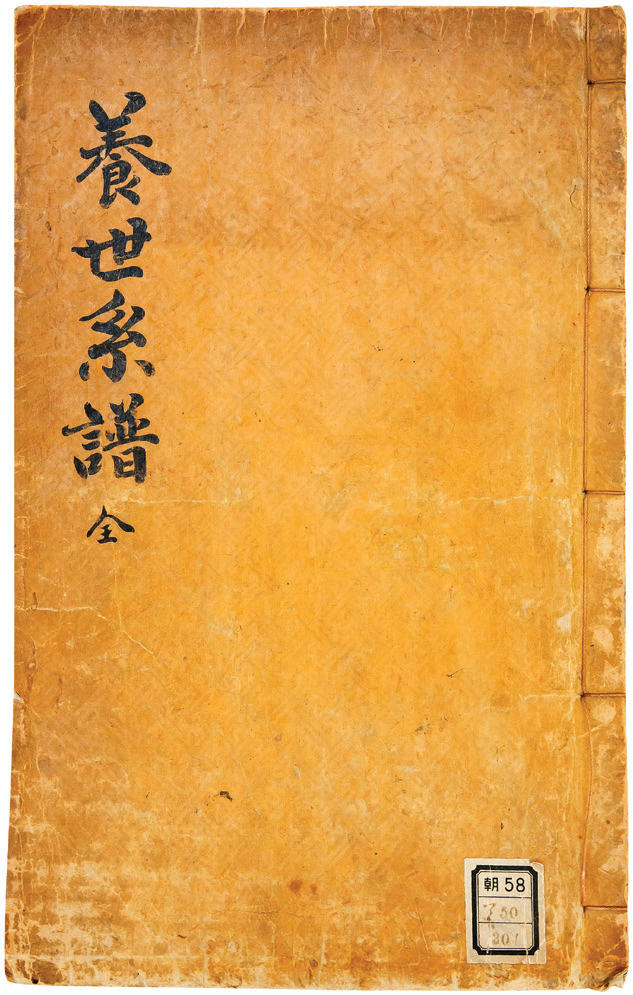 養世系譜
全
朝 58
50
301